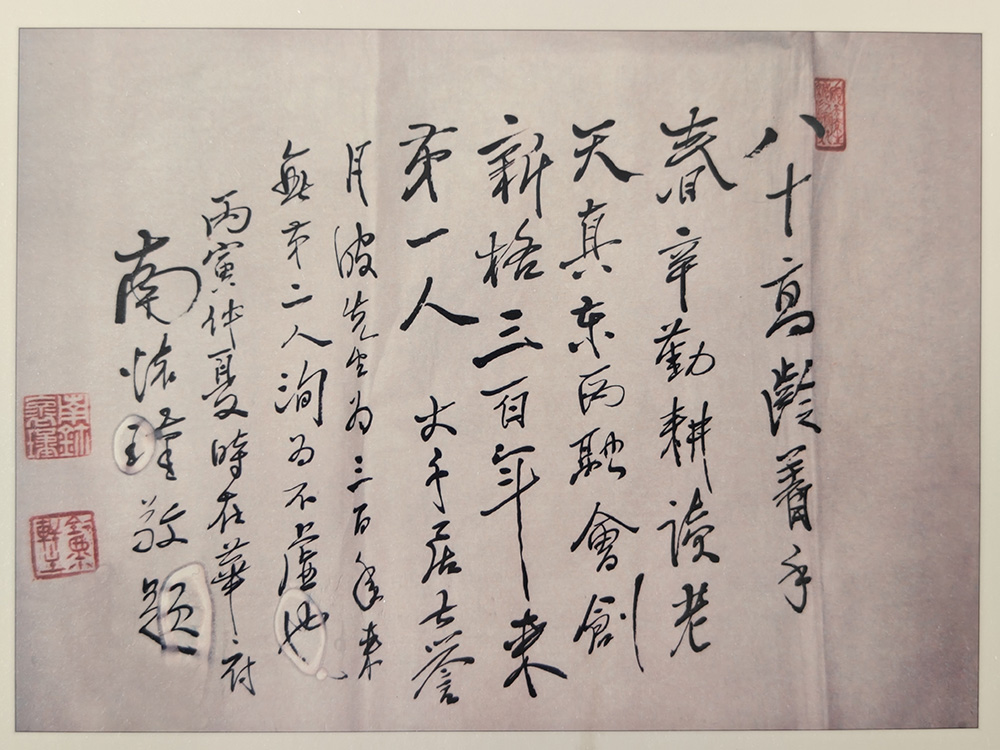 八十高齡着手
春辛勤耕讀老
天真東西融會創
新格三百年來
第一人 大千居士譽
月波先生为三百年來
無第二人洵为不虛也
丙寅仲夏時在華府
南懷瑾敬題